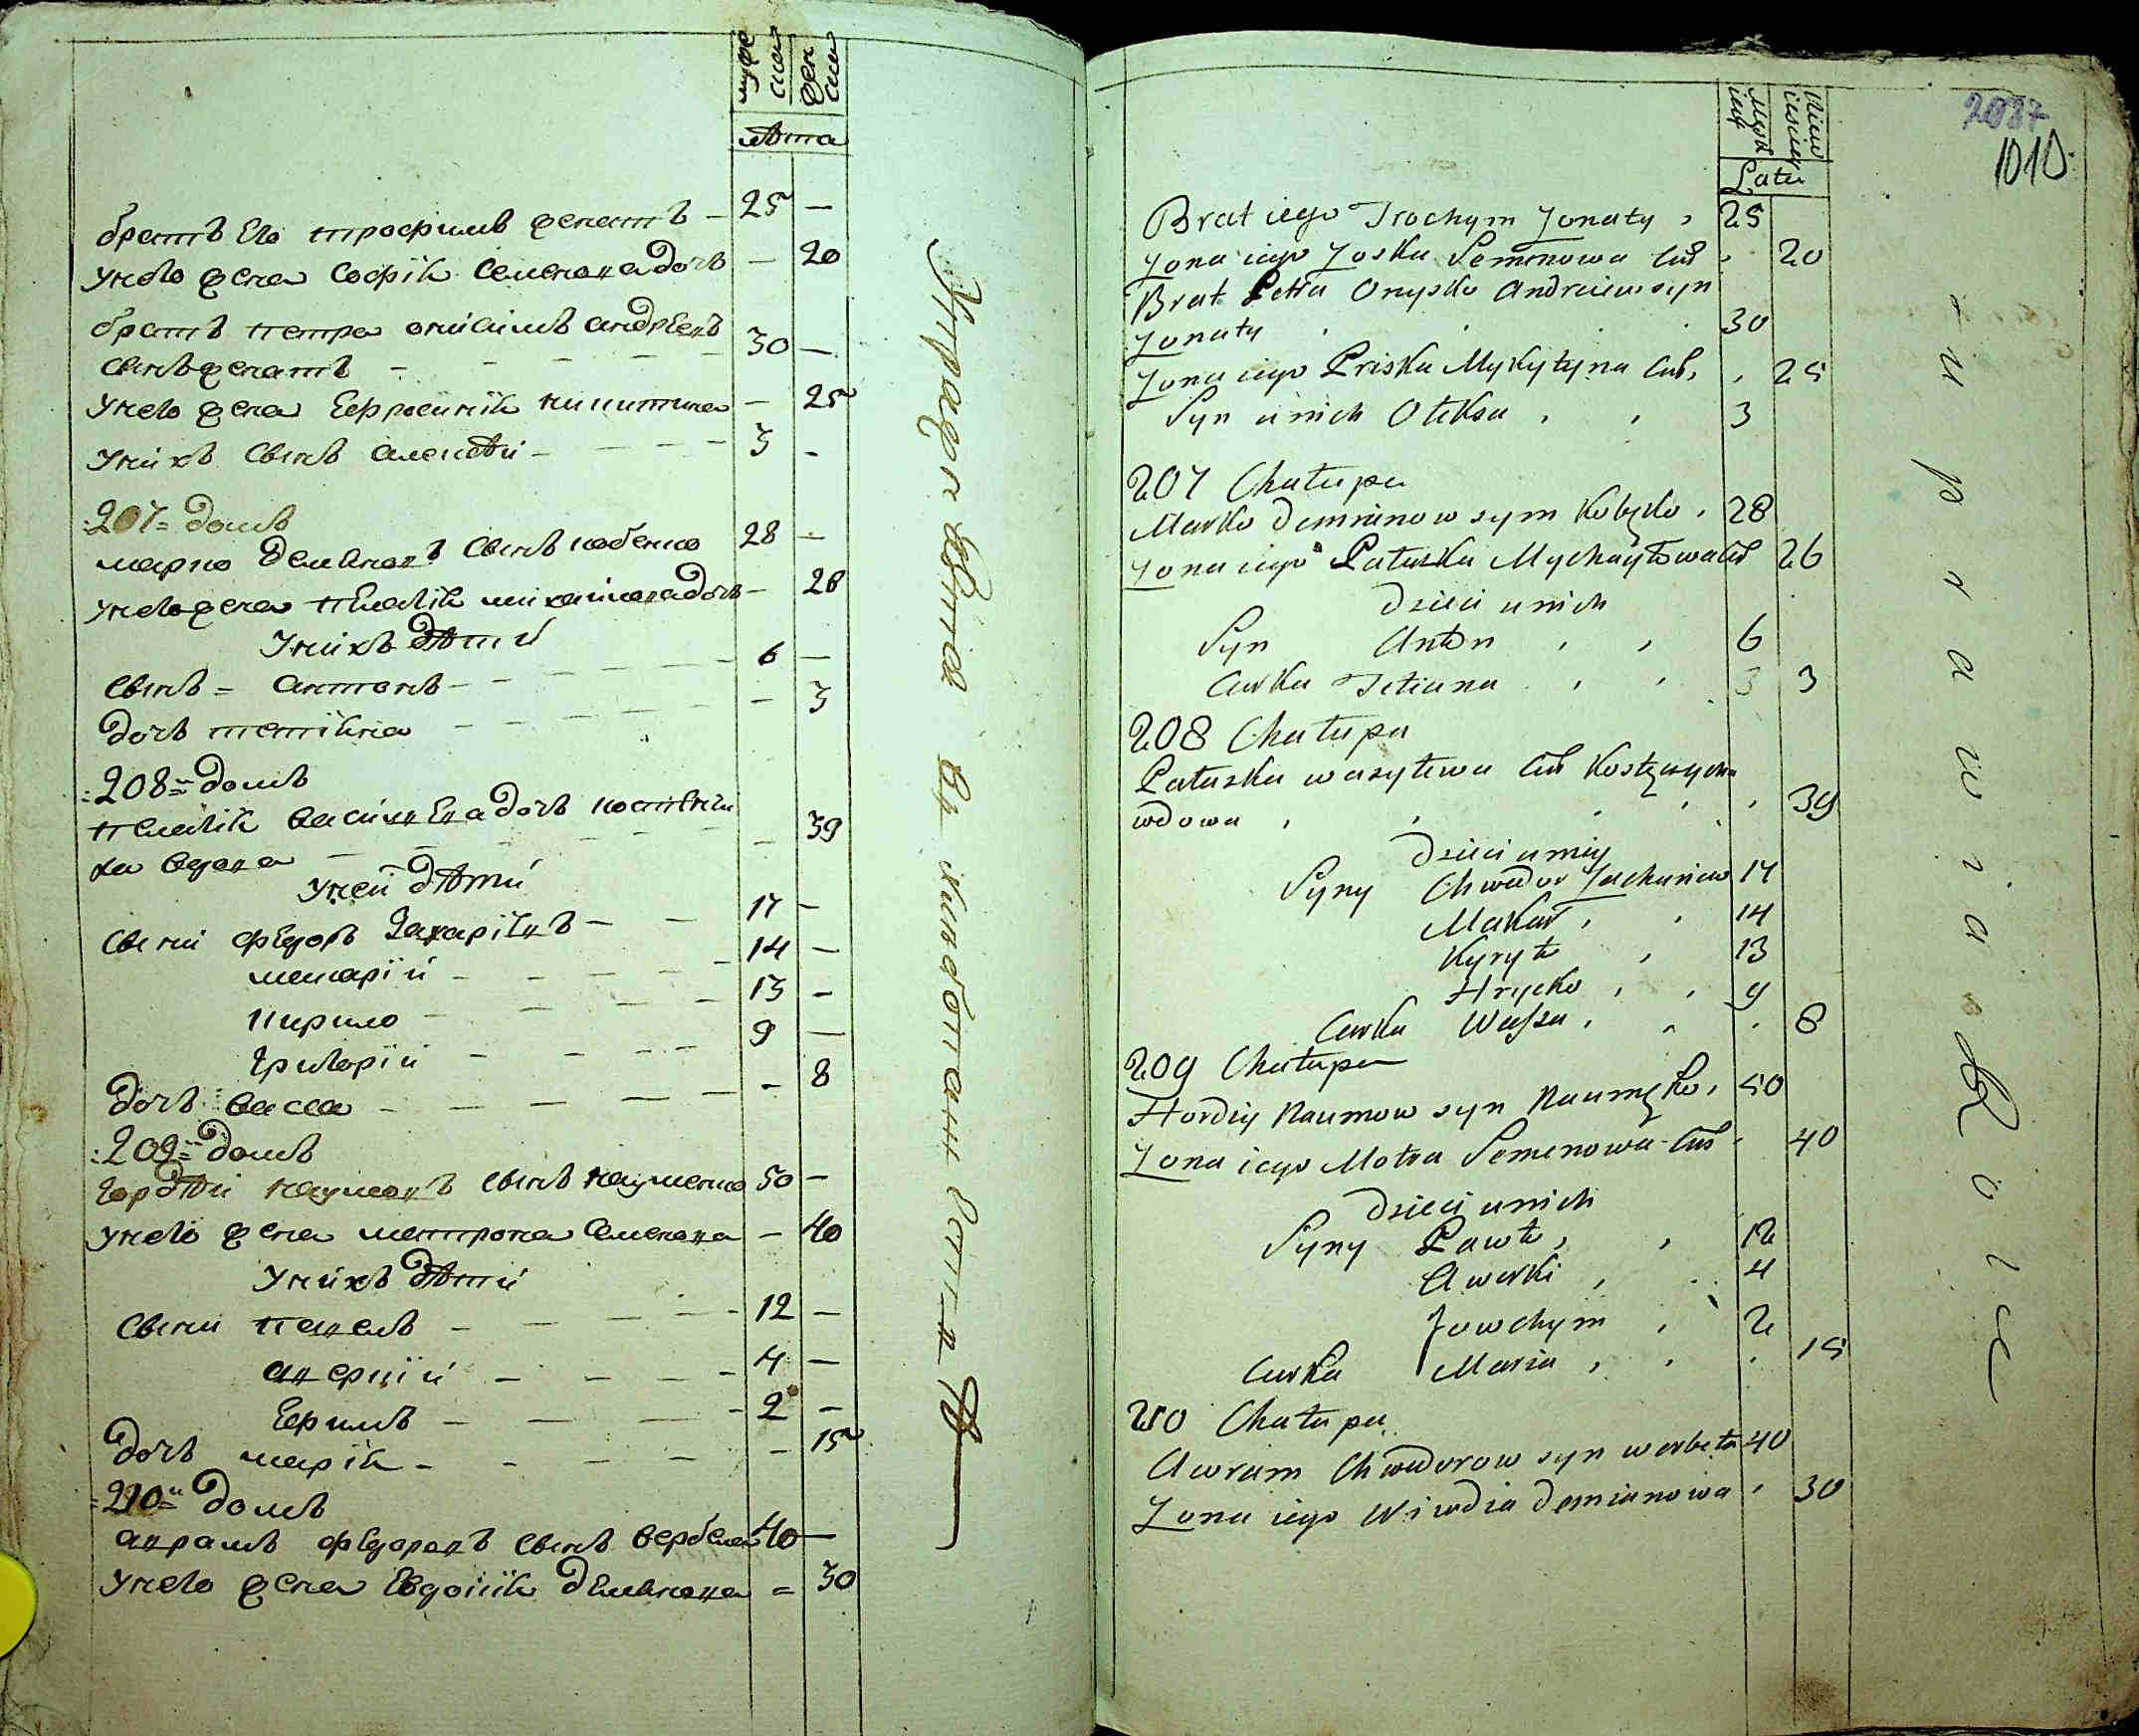 муже
ска
жен
ска
лѣта
братъ Его трофимъ женатъ – 25 –
унего жена софія семенова дочь – 20
братъ петра онисимъ андреевъ
сынъ женатъ – 30 –
унего жена Ефросинія никитина – 25
унихъ сынъ алексѣй – 3 –
207 домъ
марко демьяновъ сынъ кобенко 28 –
унего жена пелагія михайлова дочь – 26
унихъ дѣти
сынъ антонъ 6 –
дочь тетіяна – 3
208 домъ
пелагія василева дочь
ха вдова – 39
у ней дѣти
сыни федоръ Захаріевъ – 17 –
макарій – 14 –
кирило – 13 –
григорій – 9 –
дочь васса – 8
209 домъ
гордѣй наумовъ сынъ науменко 50 –
унего жена матрона семенова – 40
унихъ дѣти
сыни павелъ – 12 –
аверкій – 4 –
Ефимъ – 2 –
дочь марія – 15
210 домъ
аврамъ федоровъ сынъ вербела 40 –
унего жена Евдокія демьянова = 30
2037
1010
Latu
Brat iego Trochym Zonaty 25
Zona iego Zoska Semenowa Cus 20
Brat Petra Onysko Andreiew syn
Zonaty 30
Zona iego Priska Mykytyna Cus, 25
Syn u nich Oleksa 3
207 Chałupa
Marko Demianow syn Kobęko 28
Zona iego Pałaszka Mychayłowa Cus 26
Dzieci u nich
Syn Anton 6
Curka Tetiana 3 3
208 Chałupa
Pałaszka wasylewa Cus
wdowa 39
Dzieci u niey
Syny Chwedor Zachariew 17
Makar 14
Kyryło 13
Hrycko 9
Curka Wassa 8
209 Chałupa
Hordiy Naumow syn Naumęko, 50
Zona iego Motra Semenowa Cus 40
Dzieci u nich
Syny Pawło, 12
Awerki, 4
Jowchym 2
Curka Maria, 15
210 Chałupa
Awram Chwedorow syn werbeła 40
Zona iego Wiwdia Demianowa 30